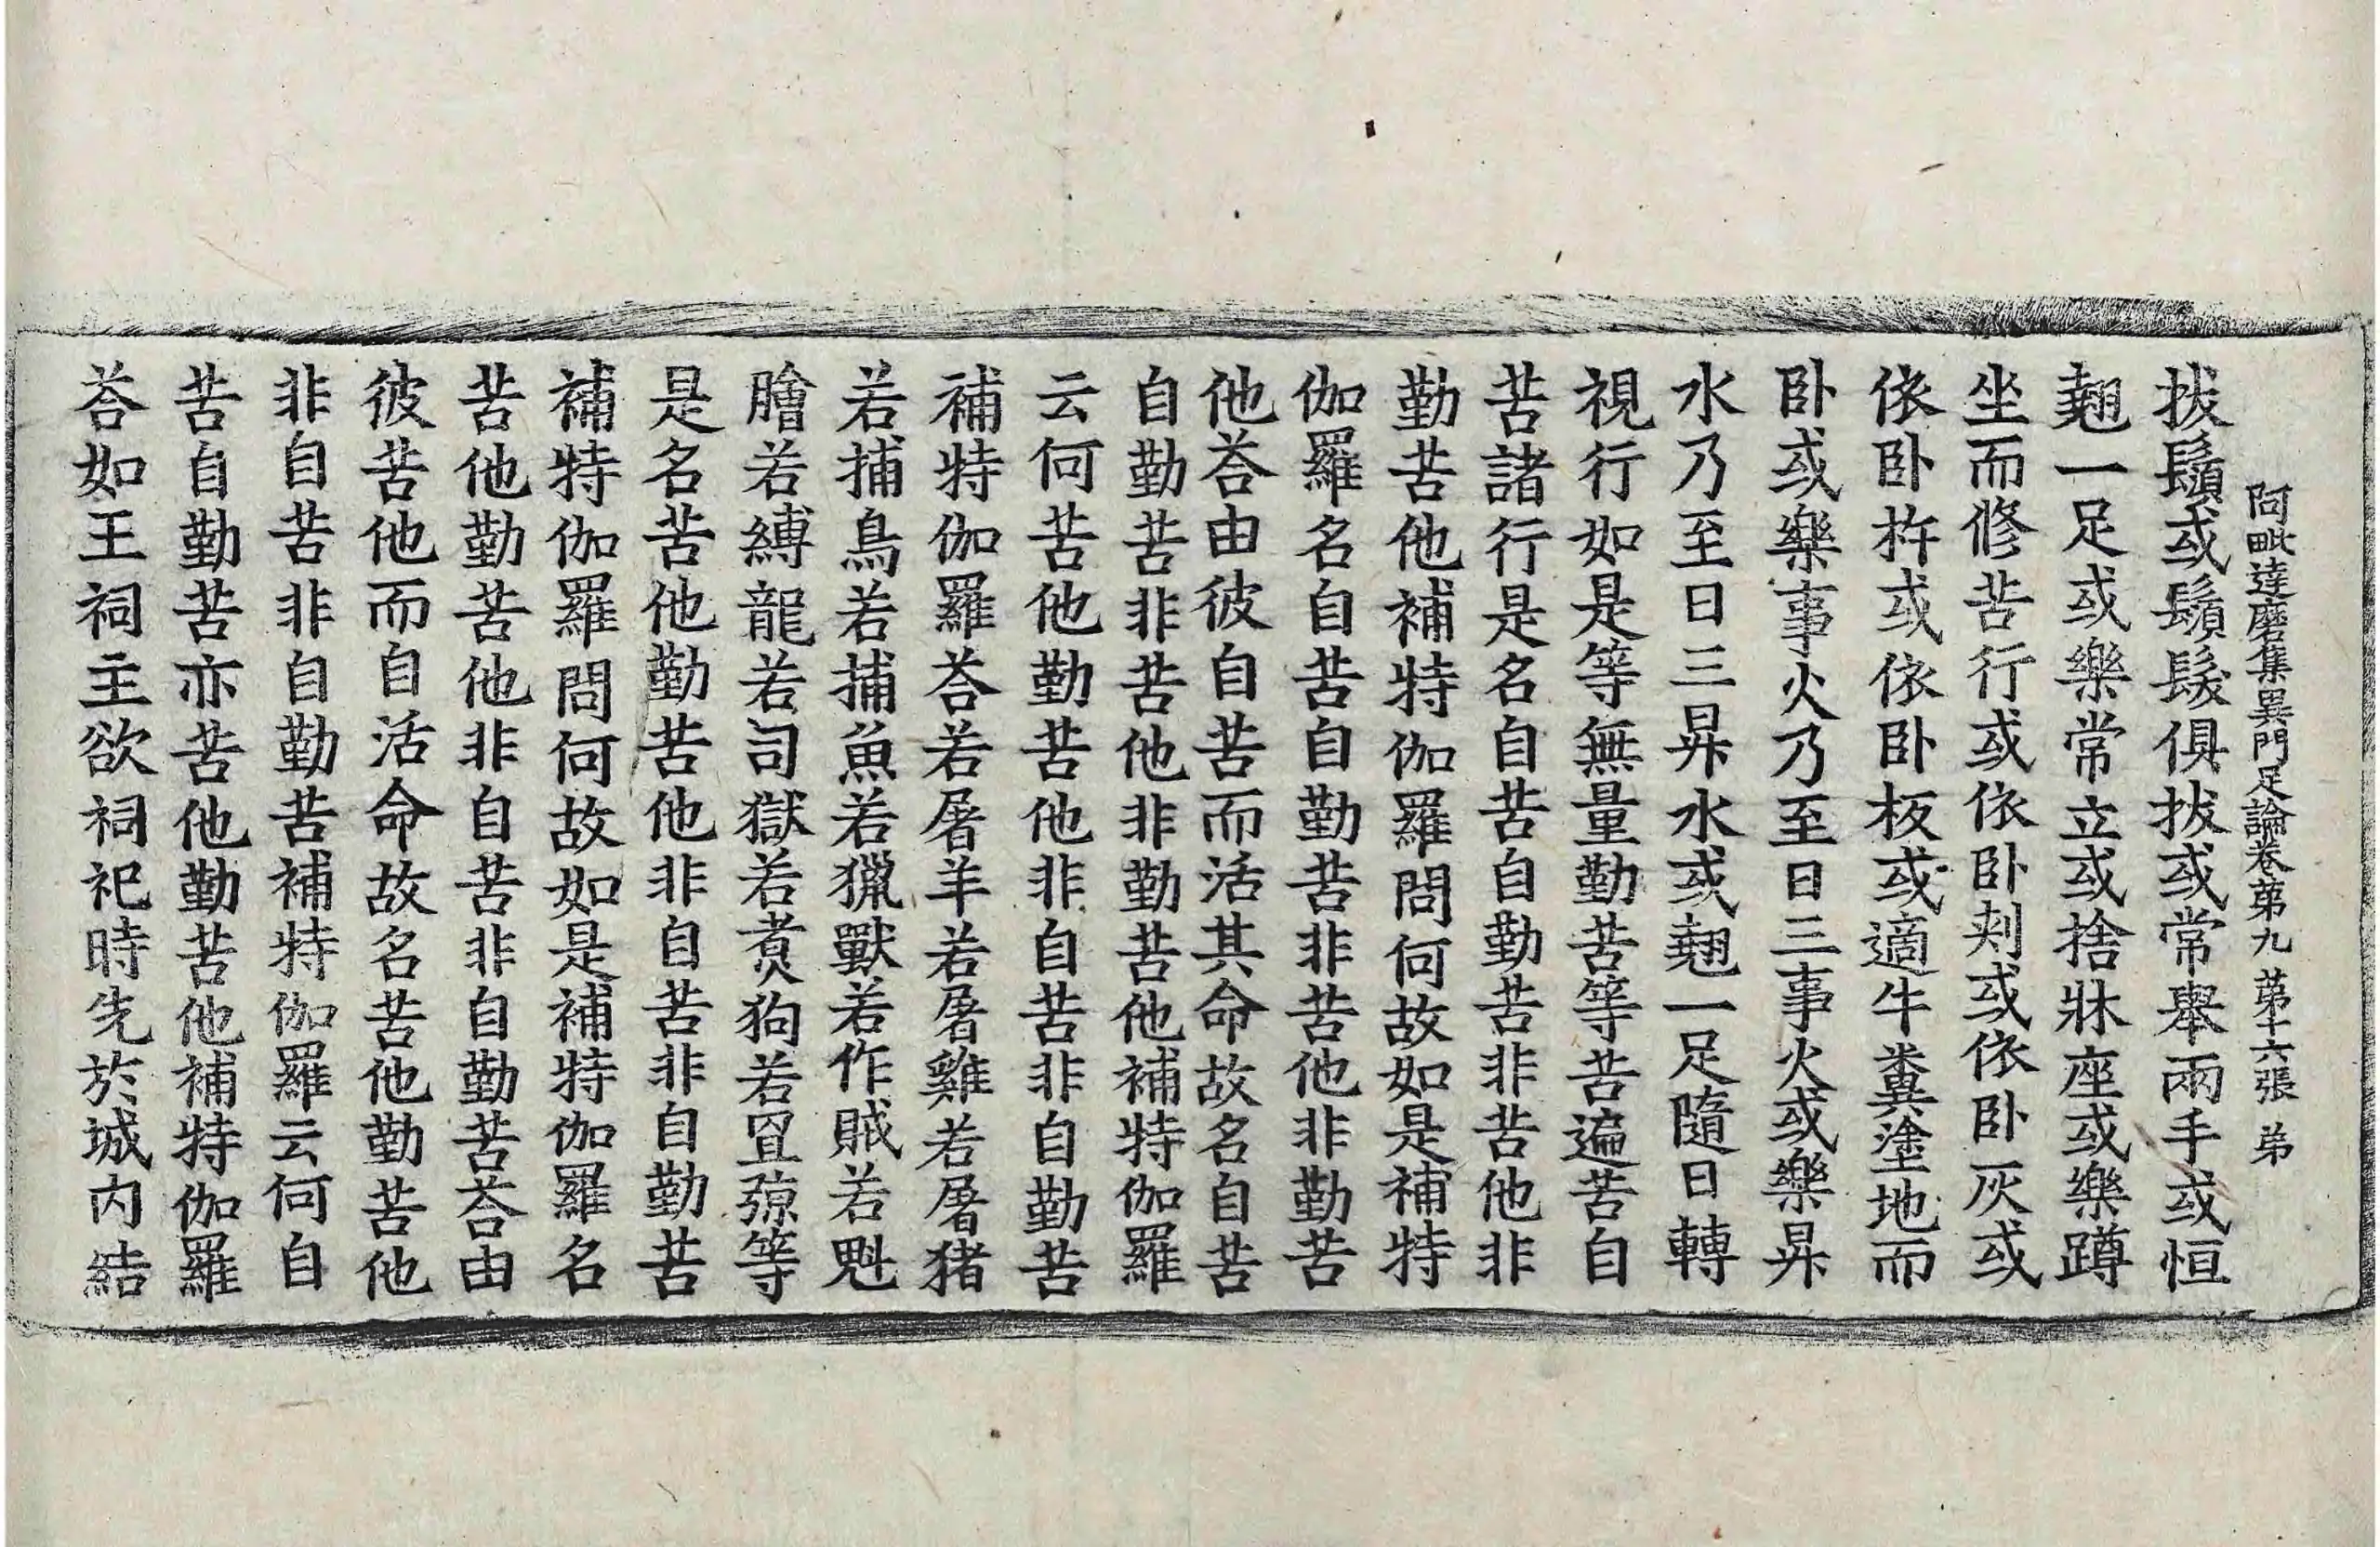 阿毗達磨集異門足論卷第九 第十六張 弟
拔鬚或鬚髮俱拔或常舉兩手或恒
翹一足或樂常立或捨牀座或樂蹲
坐而修苦行或依卧刾或依卧灰或
依卧杵或依卧板或適牛糞塗地而
卧或樂事火乃至日三事火或樂昇
水乃至日三昇水或翹一足隨日轉
視行如是等無量勤苦等苦遍苦自
苦諸行是名自苦自勤苦非苦他非
勤苦他補特伽羅問何故如是補特
伽羅名自苦自勤苦非苦他非勤苦
他荅由彼自苦而活其命故名自苦
自勤苦非苦他非勤苦他補特伽羅
云何苦他勤苦他非自苦非自勤苦
補特伽羅荅若屠羊若屠雞若屠猪
若捕鳥若捕魚若獵獸若作賊若魁
膾若縛龍若司獄若煑狗若罝弶等
是名苦他勤苦他非自苦非自勤苦
補特伽羅問何故如是補特伽羅名
苦他勤苦他非自苦非自勤苦荅由
彼苦他而自活命故名苦他勤苦他
非自苦非自勤苦補特伽羅云何自
苦自勤苦亦苦他勤苦他補特伽羅
荅如王祠主欲祠祀時先於城内結